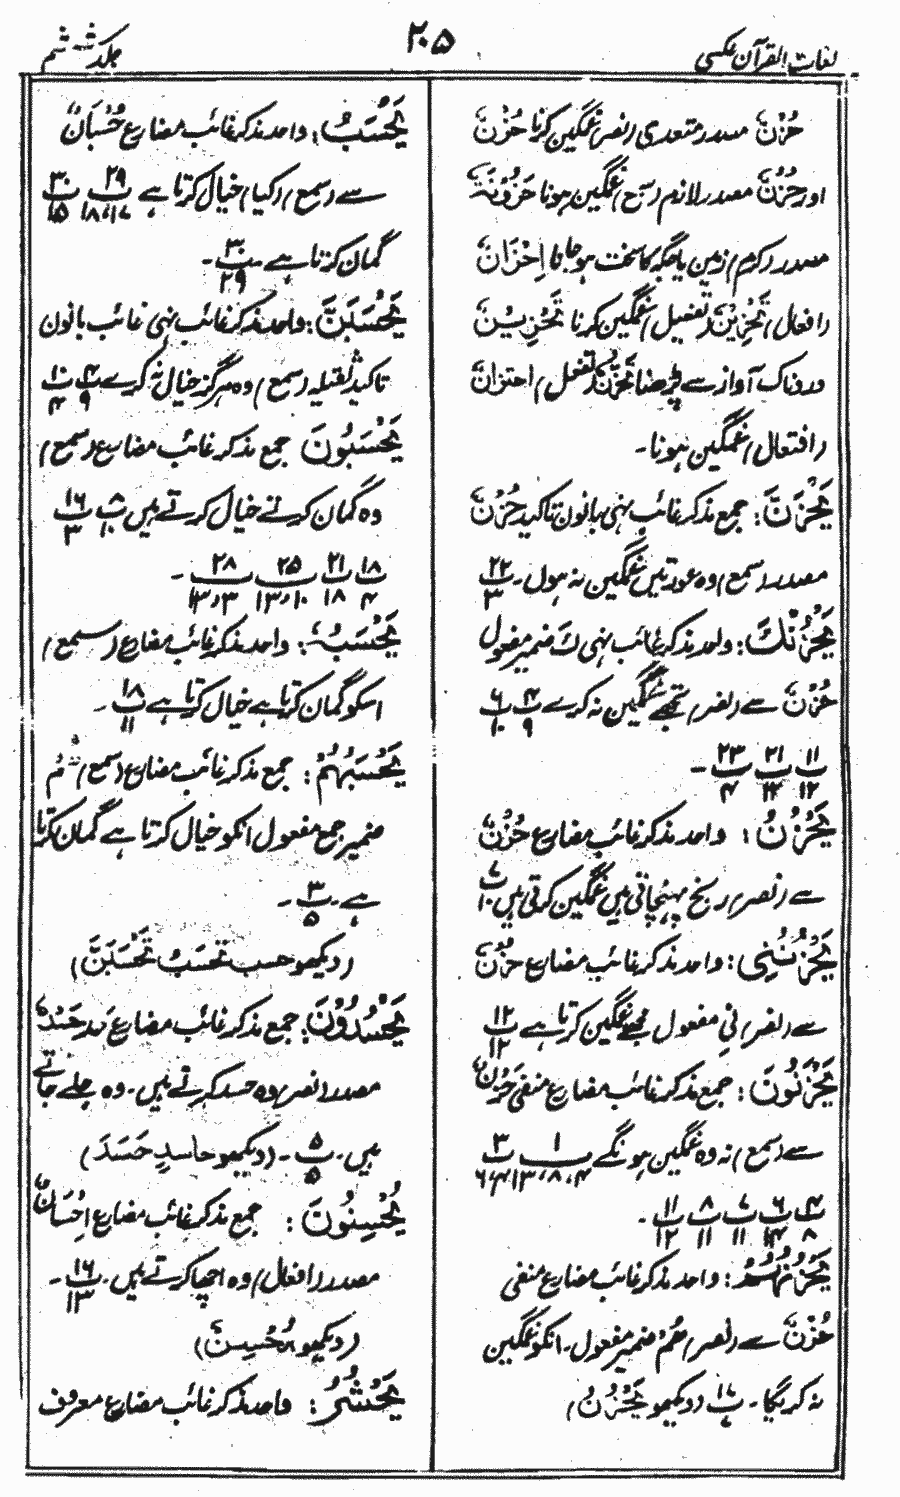 لغات القرآن عکسی
۲۰۵
جلد ششم
حُزْنٌ مصدر متعدی (نصر) غمگین کرنا حُزْنٌ
اور حُزُنٌ مصدر لازم (سمع) غمگین ہونا حَزُوْنَةٌ
مصدر (کرم) زمین یا جگہ کا سخت ہو جانا اِحْزَانٌ
(افعال) تَحْزِیْنٌ (تفعیل) غمگین کرنا تَحْزِیْنٌ
دردناک آواز سے پڑھنا تَحَزُّنٌ (تفعل) احتزانٌ
(افتعال) غمگین ہونا۔
یَحْزَنَّ : جمع مذکر غائب نہی بانون تاکید حُزْنٌ
مصدر (سمع) وہ عورتیں غمگین نہ ہوں۔ ۲۲ ب ۳
یَحْزُنْكَ : واحد مذکر غائب نہی كَ ضمیر مفعول
حُزْنٌ سے (نصر) تجھے غمگین نہ کرے ۴ ب ۹ ۶ ب ۱۰
۱۱ ب ۱۲ ۲۱ ب ۱۲ ۲۳ ب ۴ ۔
یَحْزُنُ : واحد مذکر غائب مضارع حُزْنٌ
سے (نصر) رنج پہنچاتی ہیں غمگین کرتی ہیں ۷ ب ۱۰
یَحْزُنُنِیْ : واحد مذکر غائب مضارع حُزْنٌ
سے (نصر) نِی مفعول مجھے غمگین کرتا ہے ۱۲ ب ۱۲
یَحْزَنُوْنَ : جمع مذکر غائب مضارع منفی حُزْنٌ
سے (سمع) نہ وہ غمگین ہونگے ۱ ب ۴، ۸، ۱۳ ۳ ب ۴، ۶
۴ ب ۸ ۶ ب ۱۴ ۷ ب ۱۱ ۸ ب ۱۱ ۱۱ ب ۱۲ ۔
یَحْزُنُهُمْ : واحد مذکر غائب مضارع منفی
حُزْنٌ سے (نصر) هُمْ ضمیر مفعول۔ انکو غمگین
نہ کریگا۔ ۱۷ ب ۷ (دیکھو یَحْزُنُ)
یَحْسَبُ : واحد مذکر غائب مضارع حُسْبَانٌ
سے (سمع) (کیا) خیال کرتا ہے ۲۹ ب ۱۷، ۱۸ ۳۰ ب ۱۵
گمان کرتا ہے۔ ۳۰ ب ۲۹ ۔
یَحْسَبَنَّ : واحد مذکر غائب نہی غائب بانون
تاکید ثقیلہ (سمع) وہ ہرگز خیال نہ کرے ۴ ب ۹ ۱۰ ب ۴
یَحْسَبُوْنَ جمع مذکر غائب مضارع (سمع)
وہ گمان کرتے خیال کرتے ہیں ۸ ب ۱۰ ۱۶ ب ۳
۱۸ ب ۴ ۲۱ ب ۱۸ ۲۵ ب ۱۰، ۱۳ ۲۸ ب ۳، ۱۳ ۔
یَحْسَبُهٗ : واحد مذکر غائب مضارع (سمع)
اسکو گمان کرتا ہے خیال کرتا ہے ۱۸ ب ۱۱ ۔
یَحْسَبُهُمْ : جمع مذکر غائب مضارع (سمع) هُمْ
ضمیر جمع مفعول انکو خیال کرتا ہے گمان کرتا
ہے۔ ۳ ب ۵ ۔
(دیکھو حسب تَحْسَبُ تَحْسَبَنَّ)
یَحْسُدُوْنَ : جمع مذکر غائب مضارع حَسَدٌ
مصدر (نصر) وہ حسد کرتے ہیں۔ وہ جلے جاتے
ہیں۔ ۵ ب ۵ ۔ (دیکھو حاسدٍ حَسَدَ)
یُحْسِنُوْنَ : جمع مذکر غائب مضارع اِحْسَانٌ
مصدر (افعال) وہ اچھا کرتے ہیں۔ ۱۶ ب ۱۳ ۔
(دیکھو مُحْسِنٌ)
یَحْشُرُ : واحد مذکر غائب مضارع معروف